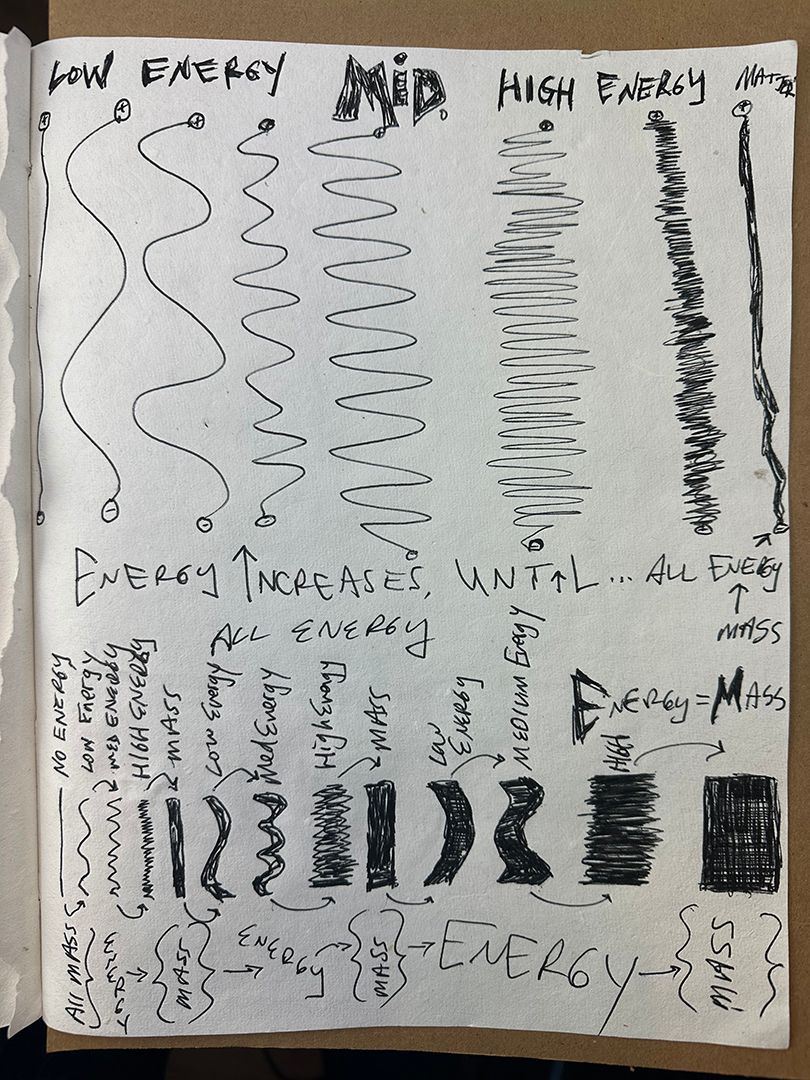 LOW ENERGY
MiD.
HIGH ENERGY
MATTER
+ + + + + + + +
- - - - - -
ENERGY INCREASES, UNTIL... ALL ENERGY
MASS
ALL ENERGY
ENERGY = MASS
NO ENERGY
LOW ENERGY
MED ENERGY
HIGH ENERGY
MASS
LOW ENERGY
Med ENERGY
High Energy
MASS
LOW ENERGY
MEDIUM Energy
HIGH
{All MASS}
ENERGY
{MASS}
ENERGY
{MASS}
ENERGY
{MASS}